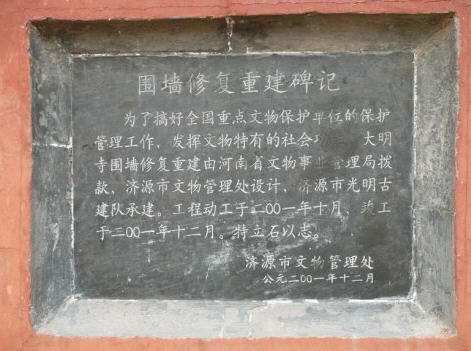 围墙修复重建碑记
为了搞好全国重点文物保护单位的保护
管理工作、发挥文物特有的社会 大明
寺围墙修复重建由河南省文物事业管理局拨
款、济源市文物管理处设计、济源市光明古
建队承建。工程动工于二00一年十月、竣工
于二00一年十二月。特立石以志。
济源市文物管理处
公元二00一年十二月